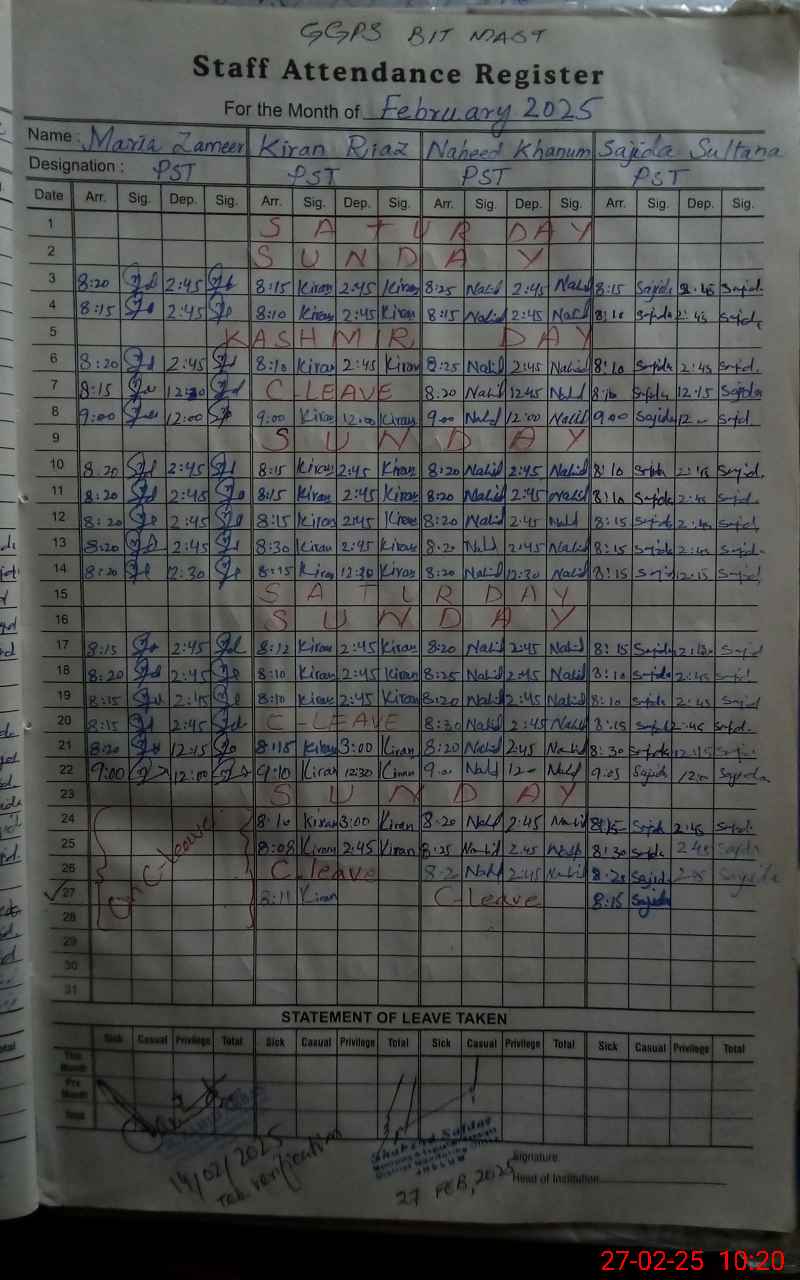 GGPS BIT MAST
Staff Attendance Register
For the Month of February 2025
Name : Maria Zameer Kiran Riaz Naheed Khanum Sajida Sultana
Designation : PST PST PST PST
Date Arr. Sig. Dep. Sig. Arr. Sig. Dep. Sig. Arr. Sig. Dep. Sig. Arr. Sig. Dep. Sig.
1 SATURDAY
2 SUNDAY
3 8:20 2:45 8:15 Kiran 2:45 Kiran 8:25 Nahid 2:45 Nahid 8:15 Sajida 2:45 Sajid.
4 8:15 2:45 8:10 Kiran 2:45 Kiran 8:15 Nahid 2:45 Nahid 8:10 Sajida 2:45 Sajid.
5 KASHMIR DAY
6 8:20 2:45 8:10 Kiran 2:45 Kiran 8:25 Nahid 2:45 Nahid 8:10 Sajida 2:45 Sajid.
7 8:15 12:30 C-LEAVE 8:20 Nahid 12:45 Nahid 8:10 Sajida 12:15 Sajida
8 9:00 12:00 9:00 Kiran 12:00 Kiran 9:00 Nahid 12:00 Nahid 9:00 Sajida Sajid.
9 SUNDAY
10 8:20 2:45 8:15 Kiran 2:45 Kiran 8:20 Nahid 2:45 Nahid 8:10 2:45 Sajid.
11 8:20 2:45 8:15 Kiran 2:45 Kiran 8:20 Nahid 2:45 Nahid 8:10 Sajida 2:45 Sajid.
12 8:20 2:45 8:15 Kiran 2:45 Kiran 8:20 Nahid 2:45 Nahid 8:15 Sajida 2:45 Sajid.
13 8:20 2:45 8:30 Kiran 2:45 Kiran 8:20 Nahid 2:45 Nahid 8:15 Sajida 2:45 Sajid.
14 8:20 12:30 8:15 Kiran 12:30 Kiran 8:20 Nahid 12:30 Nahid 8:15 Sajid 12:15 Sajid
15 SATURDAY
16 SUNDAY
17 8:15 2:45 8:12 Kiran 2:45 Kiran 8:20 Nahid 2:45 Nahid 8:15 Sajida Sajid
18 8:20 2:45 8:10 Kiran 2:45 Kiran 8:25 Nahid 2:45 Nahid 8:10 Sajida 2:45 Sajid
19 8:15 2:45 8:10 Kiran 2:45 Kiran 8:20 Nahid 2:45 Nahid 8:10 Sajida 2:45 Sajid
20 8:15 2:45 C-LEAVE 8:30 Nahid 2:45 Nahid 8:15 Sajid 2:45 Sajid.
21 8:20 12:15 8:15 Kiran 3:00 Kiran 8:20 Nahid 2:45 Nahid 8:30 Sajida 12:15 Sajid
22 9:00 12:00 9:10 Kiran 12:30 Kiran 9:00 Nahid Nahid 9:05 Sajida 12:00 Sajida
23 SUNDAY
24 8:10 Kiran 3:00 Kiran 8:20 Nahid 2:45 Nahid 8:15 Sajida 2:45 Sajid.
25 8:08 Kiran 2:45 Kiran 8:25 Nahid 2:45 Nahid 8:30 Sajida 2:45 Sajida
26 C-leave Nahid 2:45 Nahid 8:20 Sajida Sajida
27 8:11 Kiran C-leave 8:15 Sajida
28
On C-leave
29
30
31
STATEMENT OF LEAVE TAKEN
Sick Casual Privilege Total Sick Casual Privilege Total Sick Casual Privilege Total Sick Casual Privilege Total
This Month
Pre Month
Total
14/02/2025
Tab. verification
27 FEB, 2025
Signature
Head of Institution
27-02-25 10:20